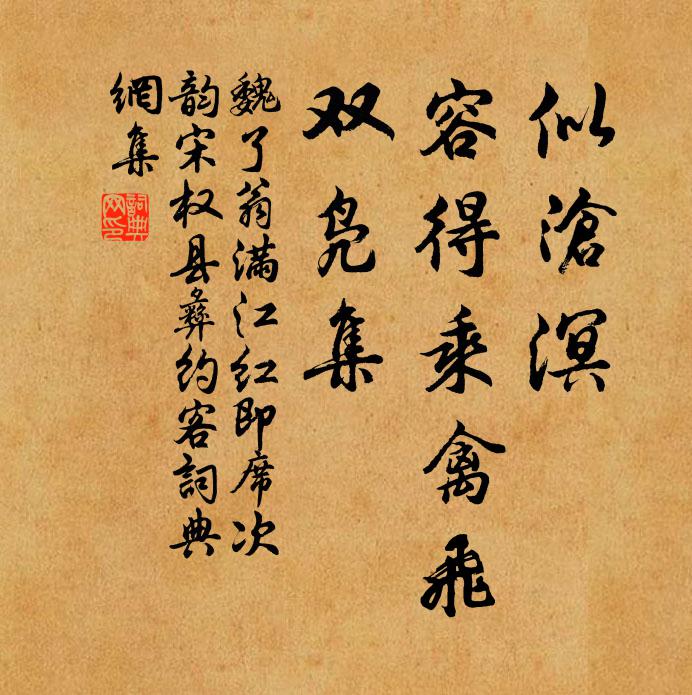 似滄溟
容得乘禽飛
双鳧集
魏了翁满江红即席次
韵宋权县彝约客詞典
網集
詞典网印